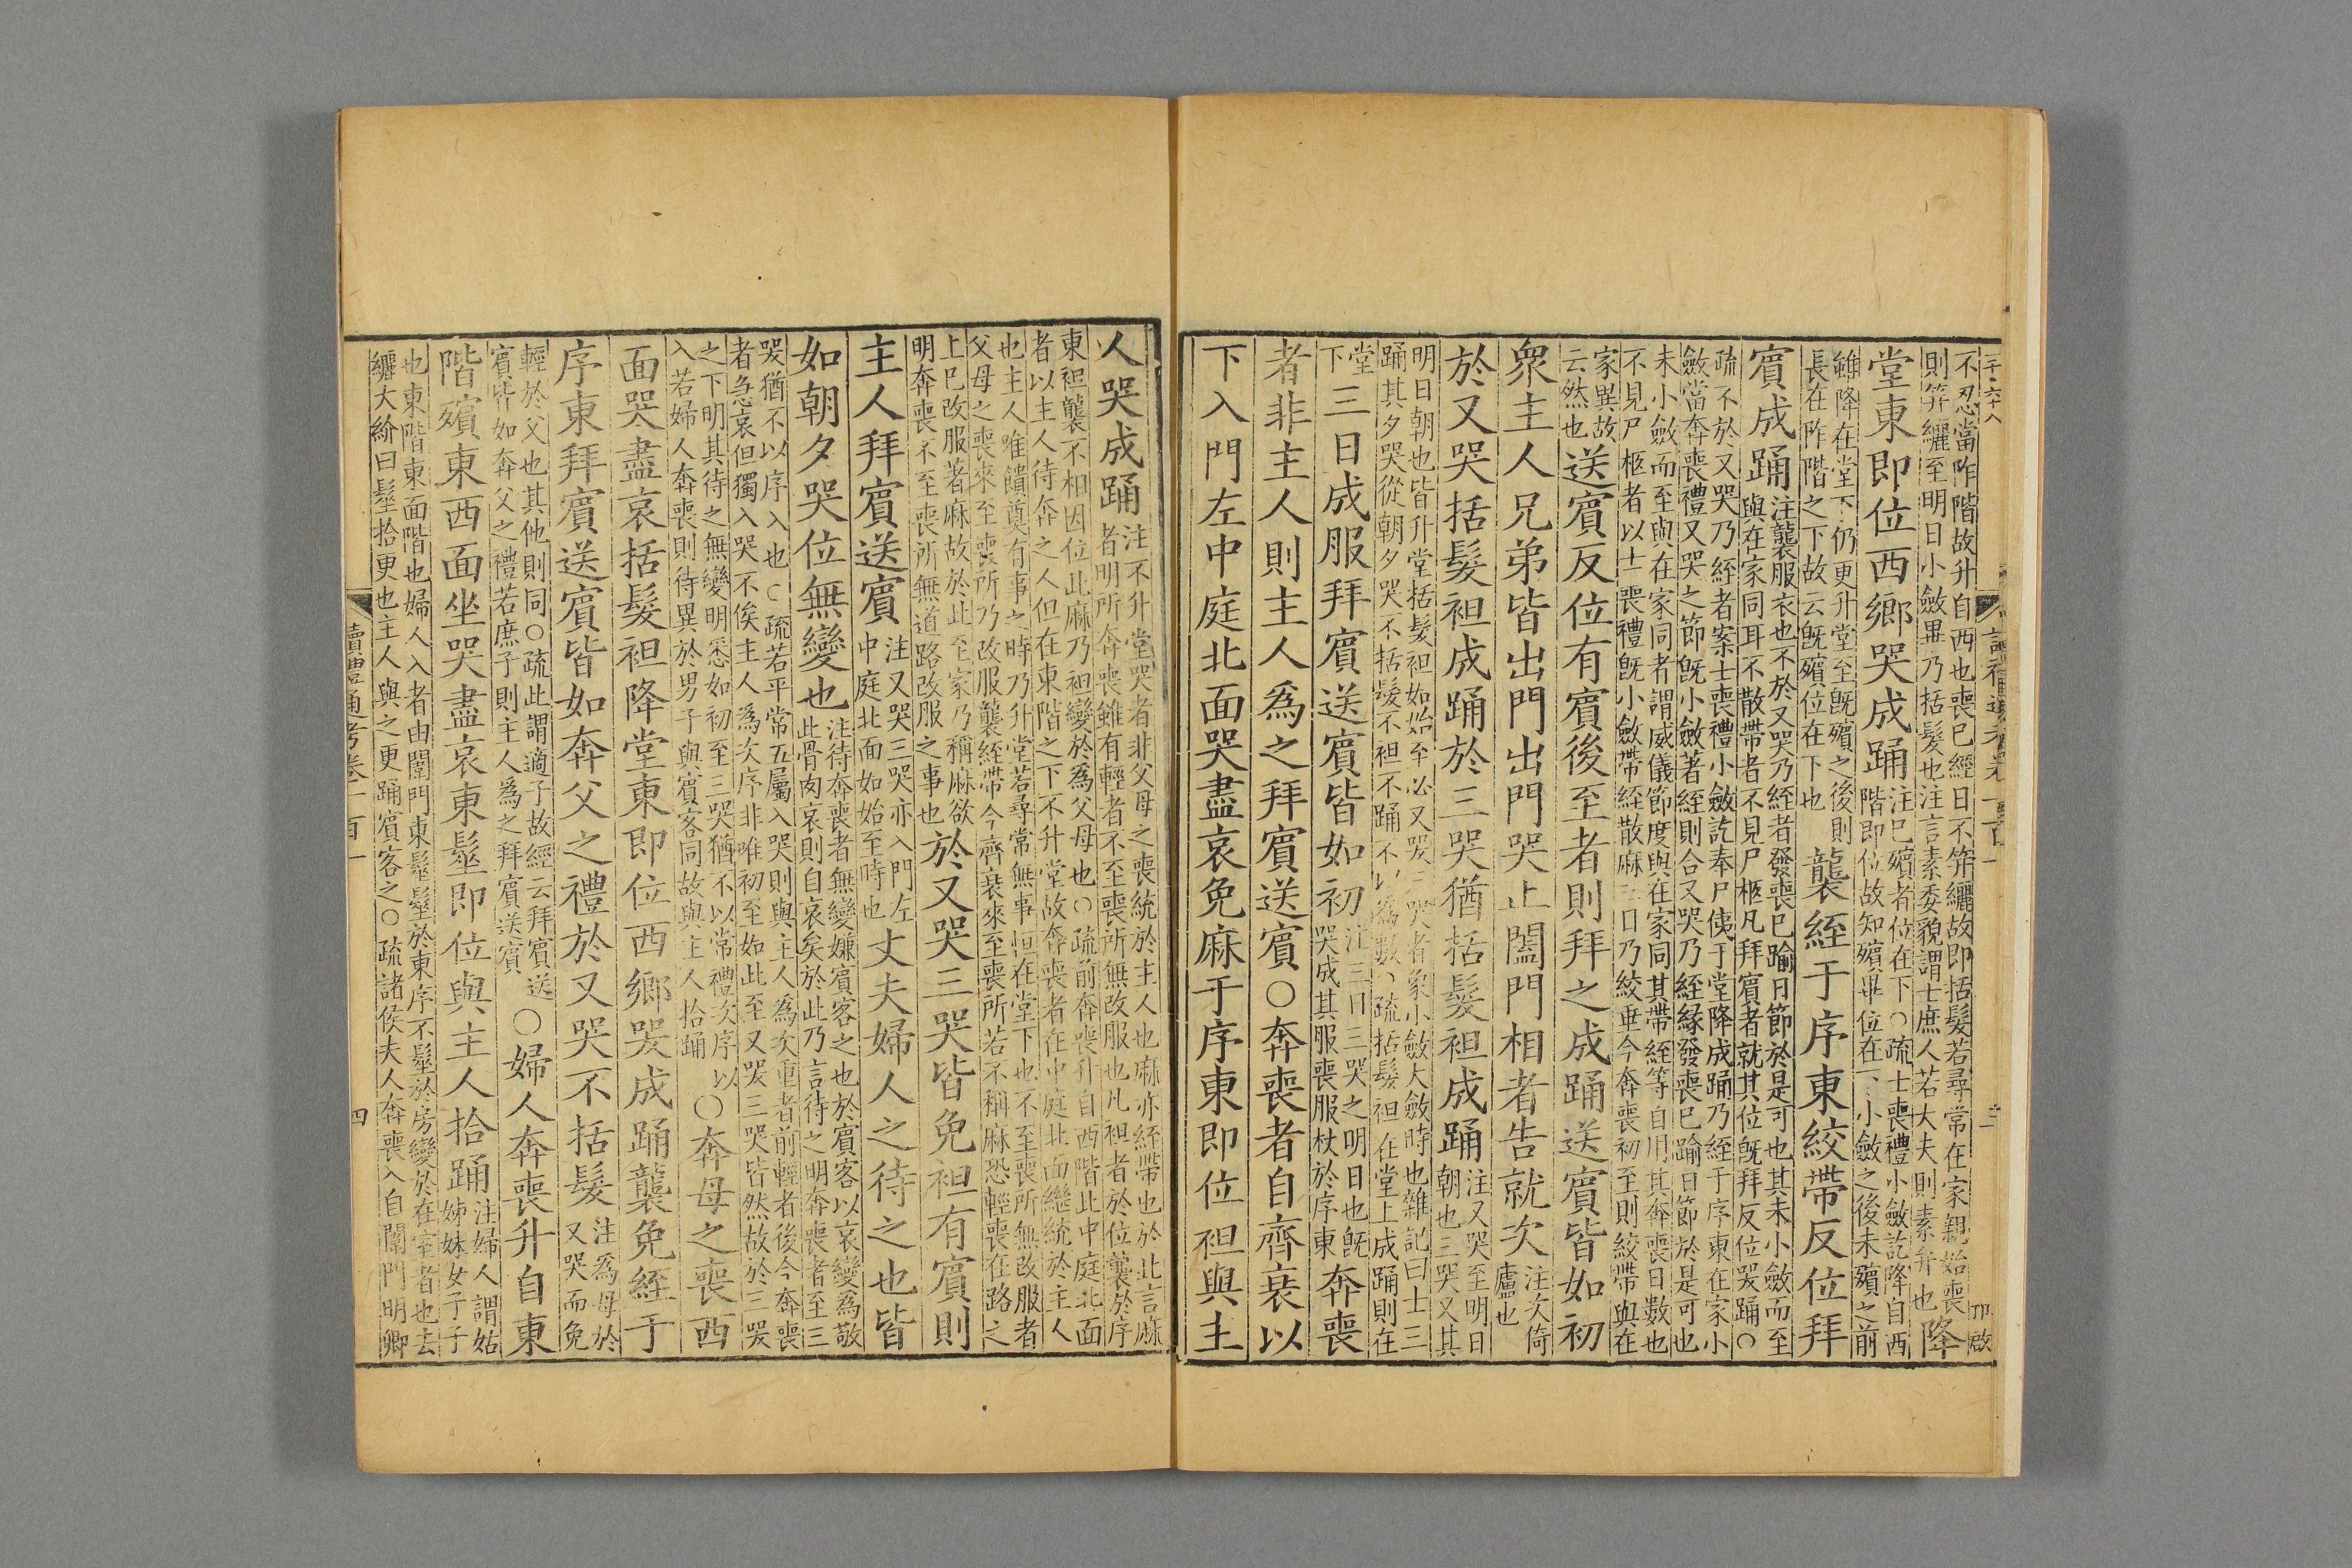 二千六十八
不忍當阼階故升自西也喪已經日不笄纚故即括髮若尋常在家親始喪
則笄纚至明日小斂畢乃括髮也注言素委貌謂士庶人若大夫則素弁也
降
堂東即位西鄉哭成踊
注已殯者位在下○疏士喪禮小斂訖降自西
階即位故知殯畢位在下小斂之後未殯之前
雖降在堂下仍更升堂至旣殯之後則
長在阼階之下故云旣殯位在下也
襲絰于序東絞帶反位拜
賓成踊
注襲服衣也不於又哭乃絰者發喪已踰日節於是可也其未小斂而至
與在家同耳不散帶者不見尸柩凡拜賓者就其位旣拜反位哭踊○
疏不於又哭乃絰者案士喪禮小斂訖奉尸侇于堂降成踊乃絰于序東在家小
斂當奔喪禮又哭之節旣小斂著絰則合又哭乃絰緣發喪已踰日節於是可也
未小斂而至與在家同者謂威儀節度與在家同其帶絰等自用其奔喪日數也
不見尸柩者以士喪禮旣小斂帶絰散麻三日乃絞垂今奔喪初至則絞帶與在
家異故
云然也
送賓反位有賓後至者則拜之成踊送賓皆如初
衆主人兄弟皆出門出門哭止闔門相者告就次
注次倚
廬也
於又哭括髮袒成踊於三哭猶括髮袒成踊
注又哭至明日
朝也三哭又其
明日朝也皆升堂括髮袒如始至必又哭三哭者象小斂大斂時也雜記曰士三
踊其夕哭從朝夕哭不括髮不袒不踊不以爲數○疏括髮袒在堂上成踊則在
堂
下
三日成服拜賓送賓皆如初
注三日三哭之明日也旣
哭成其服喪服杖於序東
奔喪
者非主人則主人爲之拜賓送賓○奔喪者自齊衰以
下入門左中庭北面哭盡哀免麻于序東即位袒與主
人哭成踊
注不升堂哭者非父母之喪統於主人也麻亦絰帶也於此言麻
者明所奔喪雖有輕者不至喪所無改服也凡袒者於位襲於序
東袒襲不相因位此麻乃袒變於爲父母也○疏前奔喪升自西階此中庭北面
者以主人待奔之人但在東階之下不升堂故奔喪者在中庭北面繼統於主人
也主人唯饋奠有事之時乃升堂若尋常無事恒在堂下也不至喪所無改服者
父母之喪來至喪所乃改服襲絰帶今齊衰來至喪所若不稱麻恐輕喪在路之
上已改服著麻故於此至家乃稱麻欲
明奔喪不至喪所無道路改服之事也
於又哭三哭皆免袒有賓則
主人拜賓送賓
注又哭三哭亦入門左
中庭北面如始至時也
丈夫婦人之待之也皆
如朝夕哭位無變也
注待奔喪者無變嫌賓客之也於賓客以哀變爲敬
此骨肉哀則自哀矣於此乃言待之明奔喪者至三
哭猶不以序入也○疏若平常五屬入哭則與主人爲次重者前輕者後今奔喪
者急哀但獨入哭不俟主人爲次序非唯初至如此至又哭三哭皆然故於三哭
之下明其待之無變明悉如初至三哭猶不以常禮次序以
入若婦人奔喪則待異於男子與賓客同故與主人拾踊
○奔母之喪西
面哭盡哀括髮袒降堂東即位西鄉哭成踊襲免絰于
序東拜賓送賓皆如奔父之禮於又哭不括髮
注爲母於
又哭而免
輕於父也其他則同○疏此謂適子故經云拜賓送
賓皆如奔父之禮若庶子則主人爲之拜賓送賓
○婦人奔喪升自東
階殯東西面坐哭盡哀東髽即位與主人拾踊
注婦人謂姑
姊妹女子子
也東階東面階也婦人入者由闈門東髽髽於東序不髽於房變於在室者也去
纚大紒曰髽拾更也主人與之更踊賓客之○疏諸侯夫人奔喪入自闈門明卿
讀禮通考卷一百一
四